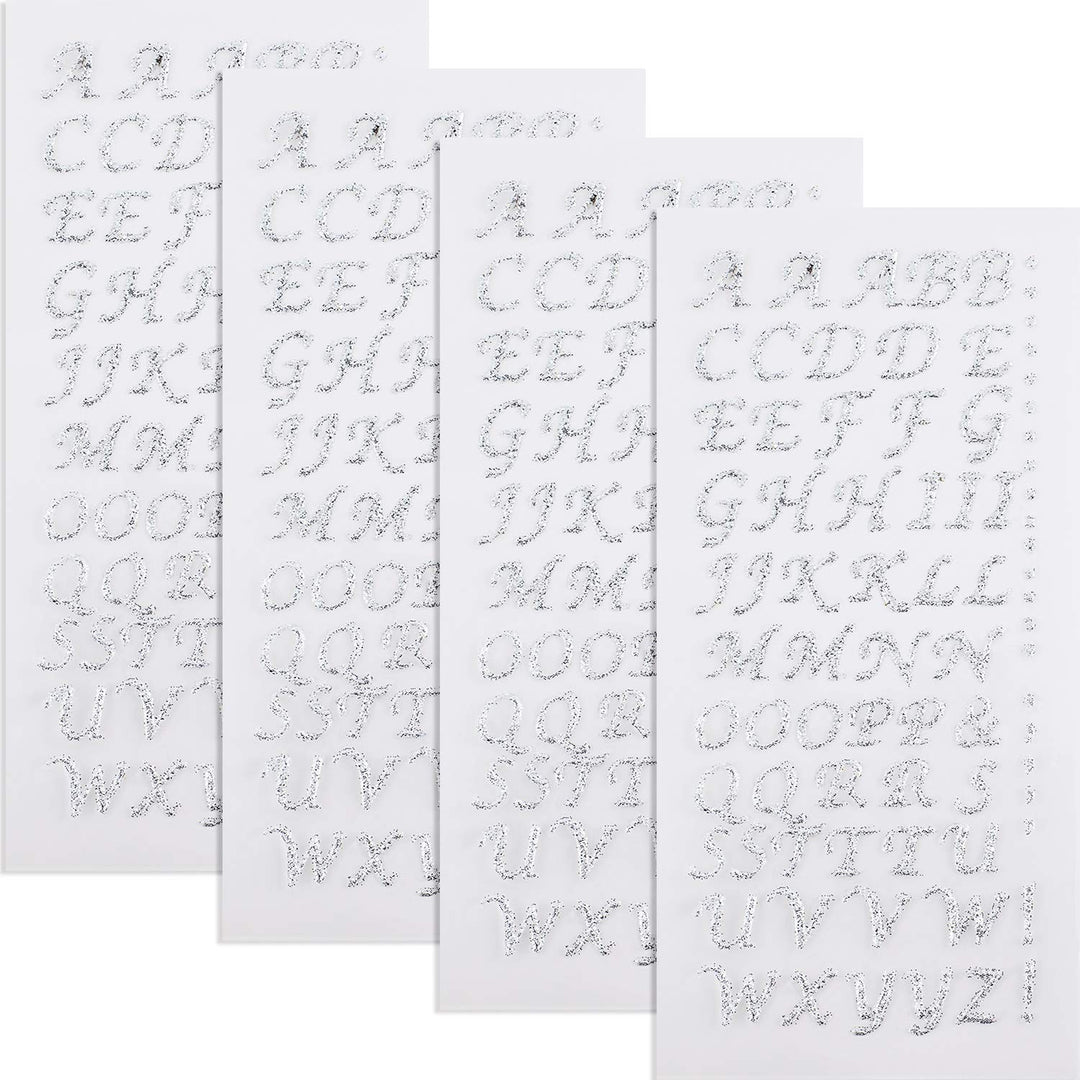 A A ABB
CCDD
EE F
GHH
JJKK
MM
OOOP
QQR
SSTT
U V V
WXY
A A ABB
CCD
EE F
GHH
JJK
MM
OOOP
QQR
SSTT
U V
WXY
A A ABB
CCD
EE F
GHH
JJK
MM
OOO
QQR
SSTT
U V
WXY
A A ABB
CCDD E
EEF F G
GHHIII
JJKKLL
MMNN
OOOPP&
QQRR S
SSTTTU
UVVVW!
WXYYZ!